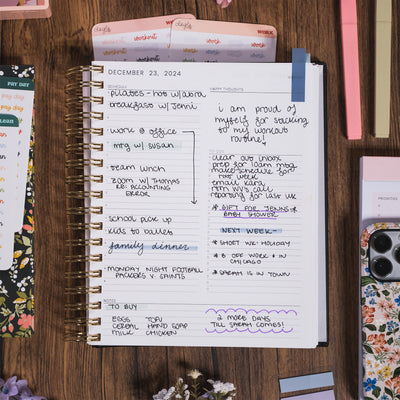 PAY DAY
PAY DAY
WORK
workout
workout
DECEMBER 23, 2024
SCHEDULE
pilates - hot w/abra
breakfast w/ Jenni
work @ office
mtg w/ susan
team lunch
zoom w/ thomas
RE: ACCOUNTING
ERROR
school pick up
kids to ballet
family dinner
MONDAY NIGHT FOOTBALL
PACKERS V. SAINTS
HAPPY THOUGHTS
i am proud of
myself for sticking
to my workout
routine!
TO DO
clear out inbox
prep for 10am mtg
make schedule for
next week
email kara
reporting for last wk
* GIFT FOR JENNI'S
BABY SHOWER
NEXT WEEK-
* SHORT WK- HOLIDAY
* B OFF WORK & IN
CHICAGO
* SARAH IS IN TOWN
NOTES
TO BUY
EGGS TOFU
CEREAL HAND SOAP
MILK CHICKEN
2 MORE DAYS
TILL SARAH COMES!
PRIORITIES